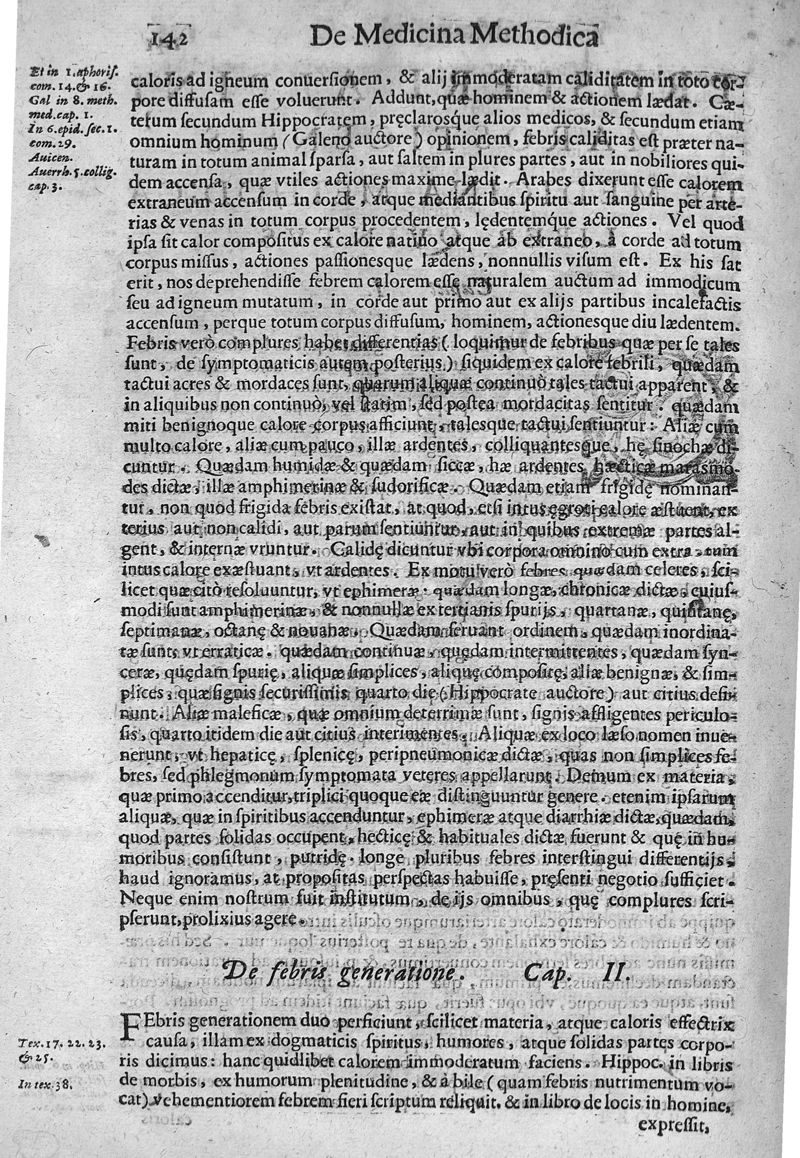 142 De Medicina Methodica
Et in 1. aphoris.
com. 14. & 16.
Gal in 8. meth.
med. cap. 1.
In 6. epid. sec. 1.
com. 29.
Auicen.
Auerrh. 5. collig.
cap. 3.
caloris ad igneum conuersionem, & alij immoderatam caliditatem in toto cor-
pore diffusam esse voluerunt. Addunt, quæ hominem & actionem lædat. Cæ-
terum secundum Hippocratem, pręclarosque alios medicos, & secundum etiam
omnium hominum (Galeno auctore) opinionem, febris caliditas est præter na-
turam in totum animal sparsa, aut saltem in plures partes, aut in nobiliores qui-
dem accensa, quæ vtiles actiones maxime lædit. Arabes dixerunt esse calorem
extraneum accensum in corde, atque mediantibus spiritu aut sanguine per arte-
rias & venas in totum corpus procedentem, lędentemque actiones. Vel quod
ipsa sit calor compositus ex calore natiuo atque ab extraneo, à corde ad totum
corpus missus, actiones passionesque lædens, nonnullis visum est. Ex his sat
erit, nos deprehendisse febrem calorem esse naturalem auctum ad immodicum
seu ad igneum mutatum, in corde aut primo aut ex alijs partibus incalefactis
accensum, perque totum corpus diffusum, hominem, actionesque diu lædentem.
Febris verò complures habet differentias (loquimur de febribus quæ per se tales
sunt, de symptomaticis autem posterius) siquidem ex calore febrili, quædam
tactui acres & mordaces sunt, quarum aliquæ continuò tales tactui apparent, &
in aliquibus non continuò, vel statim, sed postea mordacitas sentitur. quædam
miti benignoque calore corpus afficiunt, talesque tactui sentiuntur: Aliæ cum
multo calore, aliæ cum pauco, illæ ardentes, colliquantesque, hę sinochæ di-
cuntur. Quædam humidæ & quædam siccæ, hæ ardentes hæcticæ marasmo-
des dictæ, illæ amphimerinæ & sudorificæ. Quædam etiam frigidę nominan-
tur, non quod frigida febris existat, at quod, etsi intus ęgroti calore æstuent, ex
terius aut non calidi, aut parum sentiuntur, aut in quibus extremæ partes al-
gent, & internæ vruntur. Calidę dicuntur vbi corpora omnino cum extra tum
intus calore exæstuant, vt ardentes. Ex motu verò febres quædam celeres, sci-
licet quæ citò resoluuntur, vt ephimeræ. quædam longæ, chronicæ dictæ, cuius-
modi sunt amphimerinæ, & nonnullæ ex tertianis spurijs, quartanæ, quintanę,
septimanæ, octanę & nouanæ. Quædam seruant ordinem, quædam inordina-
tæ sunt, vt erraticæ. quædam continuæ, quędam intermittentes, quædam syn-
ceræ, quędam spurię, aliquæ simplices, aliquę compositę, aliæ benignæ, & sim-
plices, quæ signis securissimis quarto die (Hippocrate auctore) aut citius desi-
nunt. Aliæ maleficæ, quæ omnium deterrimæ sunt, signis affligentes periculo-
sis, quarto itidem die aut citius interimentes. Aliquæ ex loco læso nomen inue-
nerunt, vt hepaticę, splenicę, peripneumonicæ dictæ, quas non simplices fe-
bres, sed phlegmonum symptomata veteres appellarunt. Demum ex materia,
quæ primo accenditur, triplici quoque eæ distinguuntur genere. etenim ipsarum
aliquæ, quæ in spiritibus accenduntur, ephimeræ atque diarrhiæ dictæ, quædam,
quod partes solidas occupent, hecticę & habituales dictæ fuerunt & quę in hu-
moribus consistunt, putridę. longe pluribus febres interstingui differentijs,
haud ignoramus, at propositas perspectas habuisse, pręsenti negotio sufficiet.
Neque enim nostrum fuit institutum, de ijs omnibus, quę complures scri-
pserunt, prolixius agere.
De febris generatione. Cap. II.
FEbris generationem duo perficiunt, scilicet materia, atque caloris effectrix
causa, illam ex dogmaticis spiritus, humores, atque solidas partes corpo-
ris dicimus: hanc quidlibet calorem immoderatum faciens. Hippoc. in libris
de morbis, ex humorum plenitudine, & à bile (quam febris nutrimentum vo-
cat) vehementiorem febrem fieri scriptum reliquit. & in libro de locis in homine,
expressit,
Tex. 17. 22. 23.
& 25.
In tex. 38.